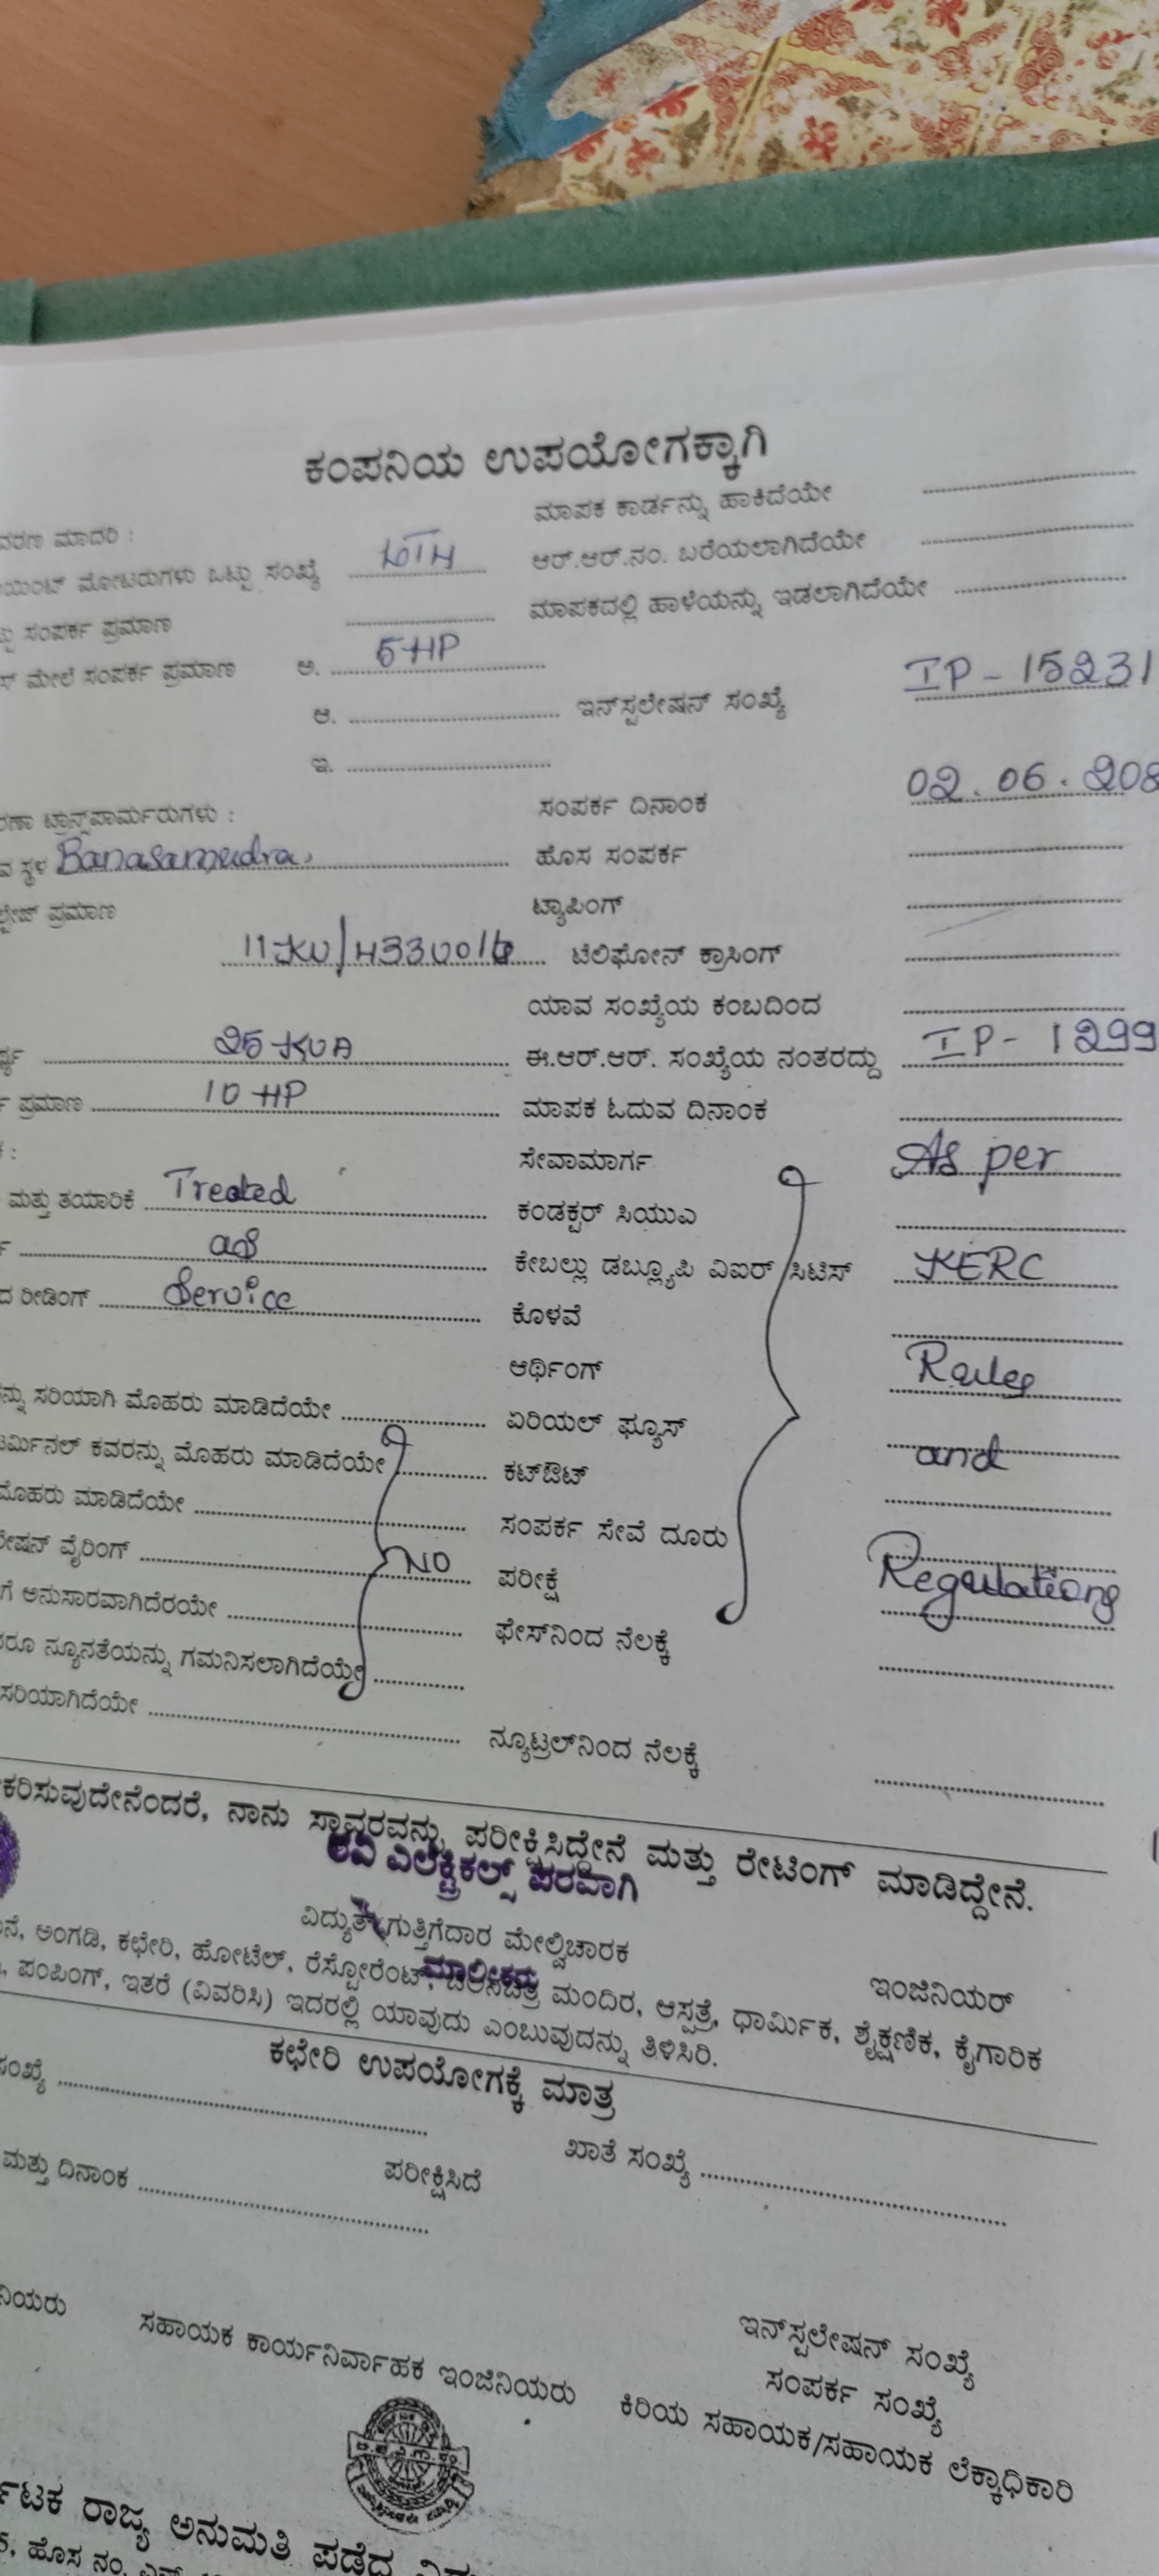 ಕಂಪನಿಯ ಉಪಯೋಗಕ್ಕಾಗಿ
ಮಾದರಿ :
ಮಾಪಕ ಕಾರ್ಡನ್ನು ಹಾಕಿದೆಯೇ
ಮೋಟರುಗಳು ಒಟ್ಟು ಸಂಖ್ಯೆ
ಆರ್.ಆರ್.ನಂ. ಬರೆಯಲಾಗಿದೆಯೇ
ಸಂಪರ್ಕ ಪ್ರಮಾಣ
ಮಾಪಕದಲ್ಲಿ ಹಾಳೆಯನ್ನು ಇಡಲಾಗಿದೆಯೇ
ಮೇಲೆ ಸಂಪರ್ಕ ಪ್ರಮಾಣ ಅ. 5 HP
ಆ. ಇನ್‌ಸ್ಟಲೇಷನ್ ಸಂಖ್ಯೆ IP - 15231
ಇ.
ಟ್ರಾನ್ಸ್‌ಫಾರ್ಮರುಗಳು : ಸಂಪರ್ಕ ದಿನಾಂಕ 02.06.
ಸ್ಥಳ Banasamudra ಹೊಸ ಸಂಪರ್ಕ
ಪ್ರಮಾಣ ಟ್ಯಾಪಿಂಗ್
ಟೆಲಿಫೋನ್ ಕ್ರಾಸಿಂಗ್
ಯಾವ ಸಂಖ್ಯೆಯ ಕಂಬದಿಂದ
25 KVA ಈ.ಆರ್.ಆರ್. ಸಂಖ್ಯೆಯ ನಂತರದ್ದು IP - 1299
ಪ್ರಮಾಣ 10 HP ಮಾಪಕ ಓದುವ ದಿನಾಂಕ
ಸೇವಾಮಾರ್ಗ As per
ಮತ್ತು ತಯಾರಿಕೆ Treated ಕಂಡಕ್ಟರ್ ಸಿಯುಎ
as ಕೇಬಲ್ಲು ಡಬ್ಲ್ಯೂಪಿ ಎಐಆರ್ ಸಿಟಿಸ್ KERC
ರೀಡಿಂಗ್ Service ಕೊಳವೆ
ಆರ್ಥಿಂಗ್ Rules
ಸರಿಯಾಗಿ ಮೊಹರು ಮಾಡಿದೆಯೇ ಏರಿಯಲ್ ಫ್ಯೂಸ್
ಕವರನ್ನು ಮೊಹರು ಮಾಡಿದೆಯೇ ಕಟ್‌ಔಟ್ and
ಮೊಹರು ಮಾಡಿದೆಯೇ ಸಂಪರ್ಕ ಸೇವೆ ದೂರು
ವೈರಿಂಗ್ NO ಪರೀಕ್ಷೆ Regulations
ಅನುಸಾರವಾಗಿದೆರಯೇ ಫೇಸ್‌ನಿಂದ ನೆಲಕ್ಕೆ
ನ್ಯೂನತೆಯನ್ನು ಗಮನಿಸಲಾಗಿದೆಯೇ
ಸರಿಯಾಗಿದೆಯೇ ನ್ಯೂಟ್ರಲ್‌ನಿಂದ ನೆಲಕ್ಕೆ
ನಾನು ಸ್ಥಾವರವನ್ನು ಪರೀಕ್ಷಿಸಿದ್ದೇನೆ ಮತ್ತು ರೇಟಿಂಗ್ ಮಾಡಿದ್ದೇನೆ.
ಎಲೆಕ್ಟ್ರಿಕಲ್ಸ್ ಪರವಾಗಿ
ವಿದ್ಯುತ್ ಗುತ್ತಿಗೆದಾರ ಮೇಲ್ವಿಚಾರಕ
ಮಾಲೀಕರು
ಇಂಜಿನಿಯರ್
ಅಂಗಡಿ, ಕಛೇರಿ, ಹೋಟೆಲ್, ರೆಸ್ಟೋರೆಂಟ್, ಮಂದಿರ, ಆಸ್ಪತ್ರೆ, ಧಾರ್ಮಿಕ, ಶೈಕ್ಷಣಿಕ, ಕೈಗಾರಿಕ
ಪಂಪಿಂಗ್, ಇತರೆ (ವಿವರಿಸಿ) ಇದರಲ್ಲಿ ಯಾವುದು ಎಂಬುವುದನ್ನು ತಿಳಿಸಿರಿ.
ಕಛೇರಿ ಉಪಯೋಗಕ್ಕೆ ಮಾತ್ರ
ಸಂಖ್ಯೆ ಖಾತೆ ಸಂಖ್ಯೆ
ಮತ್ತು ದಿನಾಂಕ ಪರೀಕ್ಷಿಸಿದೆ
ಇನ್‌ಸ್ಟಲೇಷನ್ ಸಂಖ್ಯೆ
ಸಂಪರ್ಕ ಸಂಖ್ಯೆ
ಸಹಾಯಕ ಕಾರ್ಯನಿರ್ವಾಹಕ ಇಂಜಿನಿಯರು ಕಿರಿಯ ಸಹಾಯಕ/ಸಹಾಯಕ ಲೆಕ್ಕಾಧಿಕಾರಿ
ರಾಜ್ಯ ಅನುಮತಿ ಪಡೆದ
ಹೊಸ ನಂ.